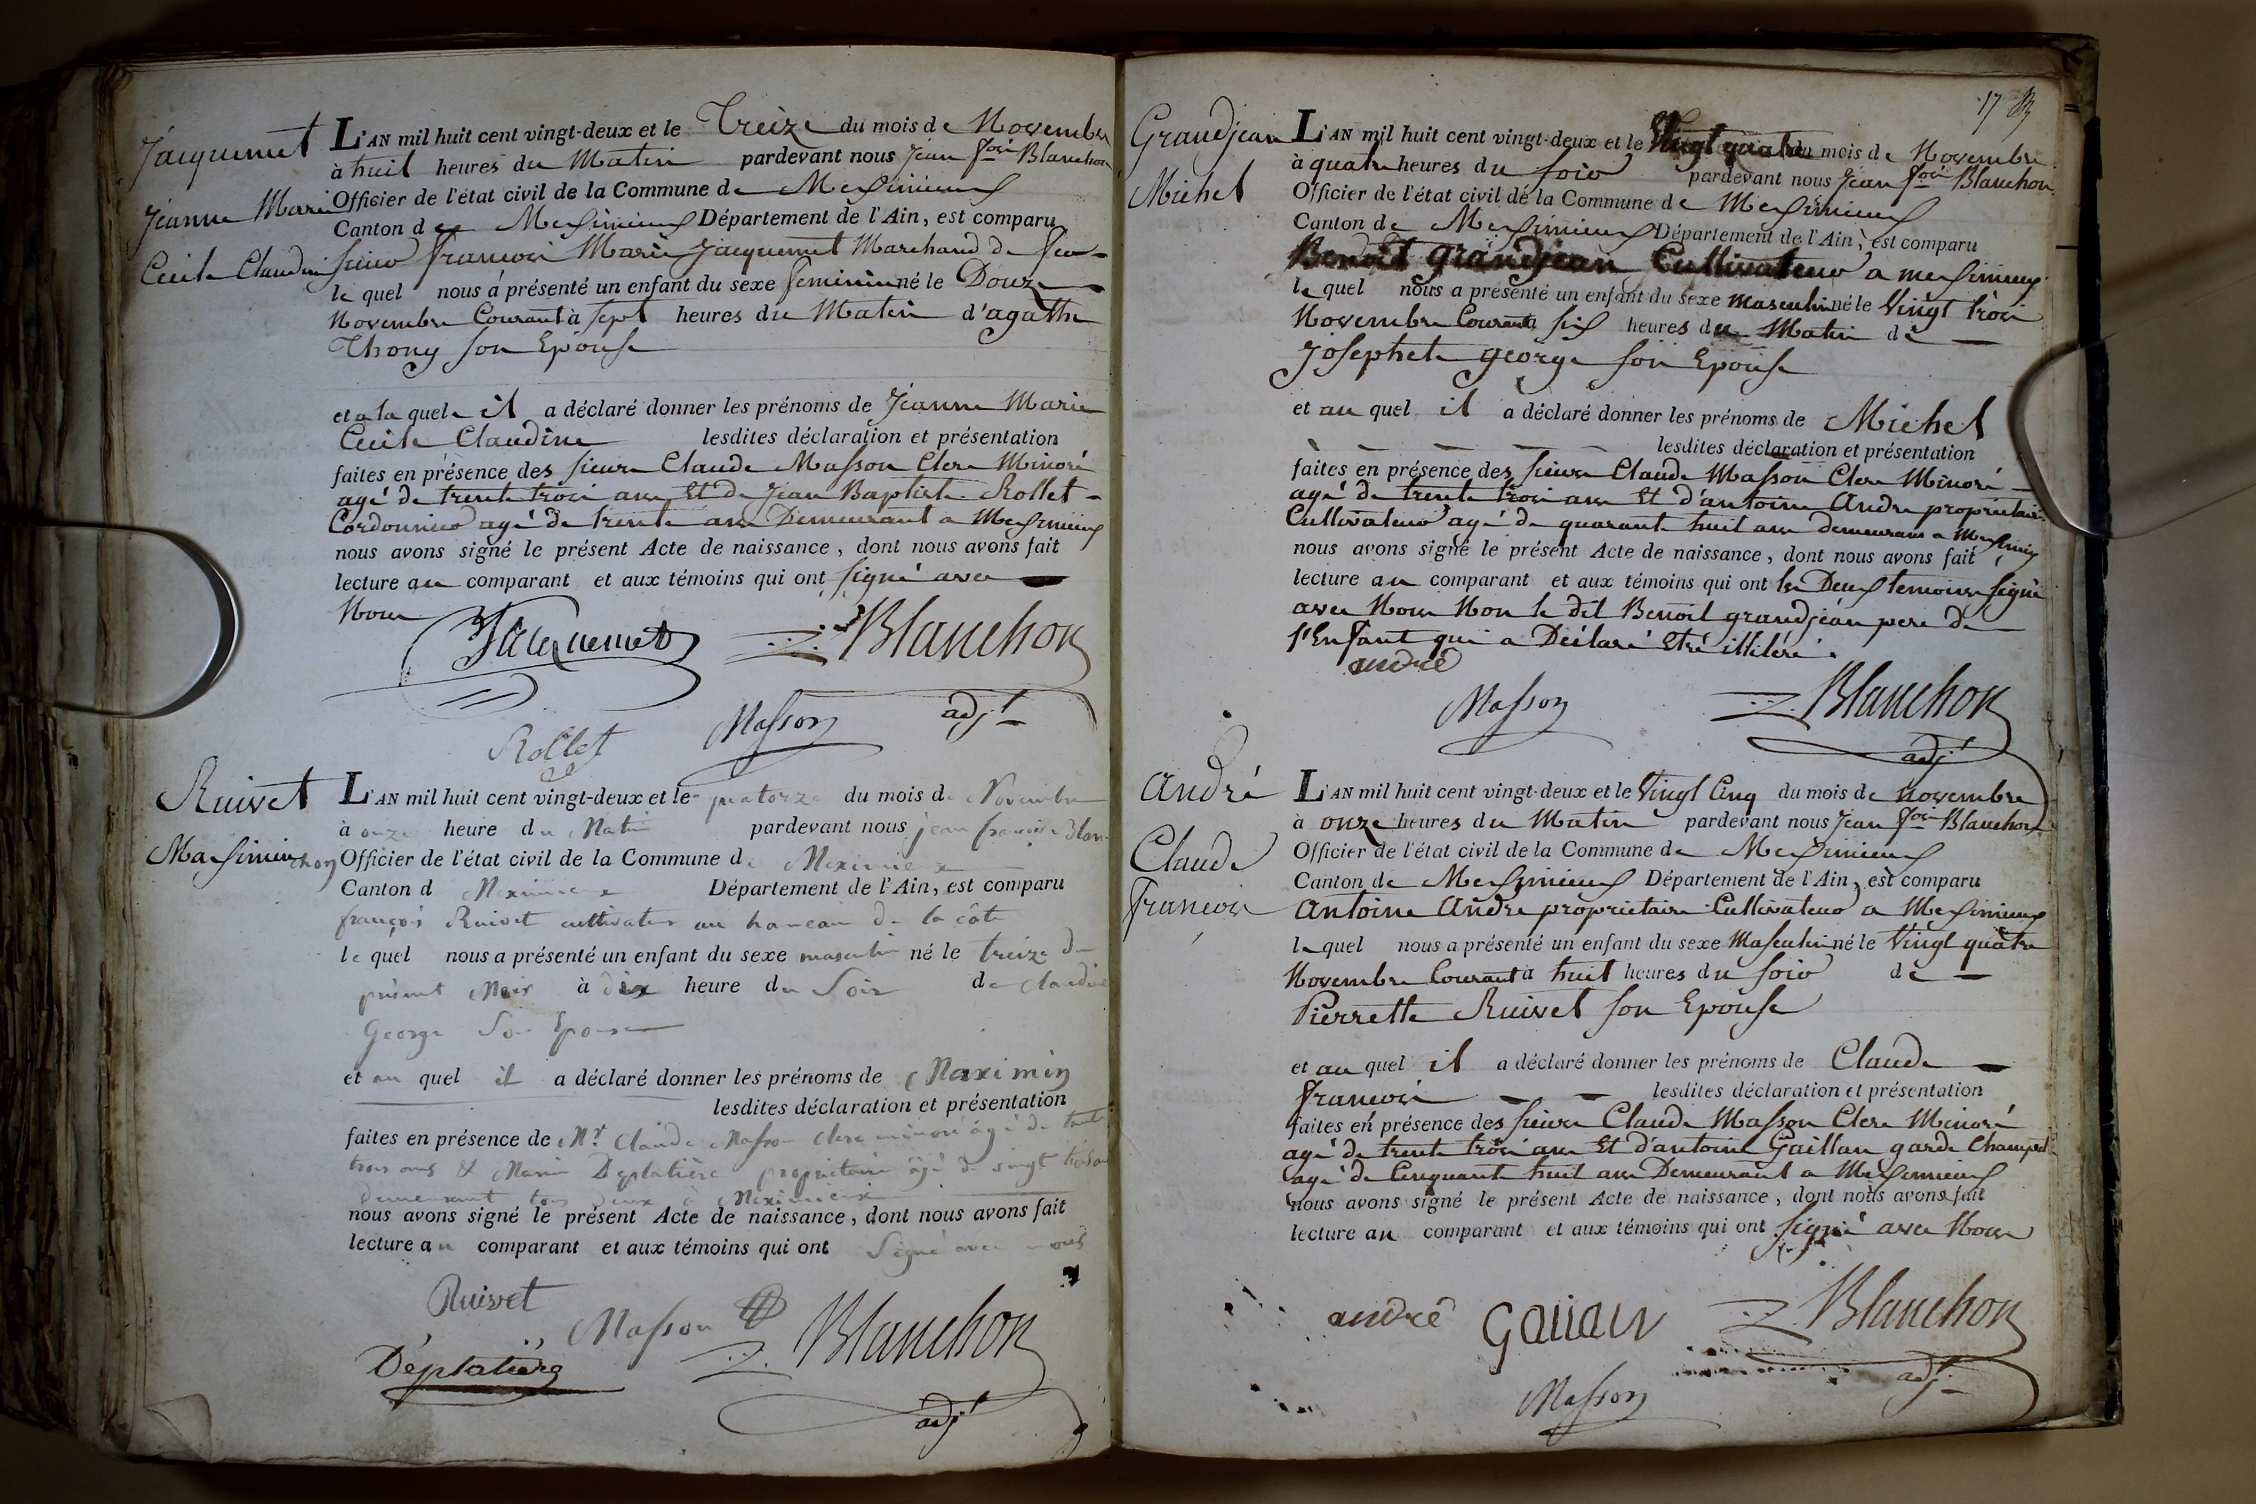 Jacquemet
Jeanne Marie
Cecile Claudine
L'AN mil huit cent vingt-deux et le Treize du mois de Novembre
à huit heures du Matin pardevant nous Jean fois Blanchon
Officier de l'état civil de la Commune de Meximieux
Canton de Meximieux Département de l'Ain, est comparu
sieur francois Marie Jacquemet Marchand de
le quel nous a présenté un enfant du sexe feminin né le Douze
Novembre Courant à sept heures du Matin d'agathe
Thony son Epouse
et a la quele il a déclaré donner les prénoms de Jeanne Marie
Cecile Claudine lesdites déclaration et présentation
faites en présence des sieurs Claude Masson Clerc Minoré
agé de trente trois ans Et de Jean Baptiste Rollet
Cordonnier agé de trente ans Demeurant a Meximieux
nous avons signé le présent Acte de naissance, dont nous avons fait
lecture au comparant et aux témoins qui ont signé avec
Nous
Jacquemet Blanchon
Rollet Masson adjt
Ruivet
Maximin
L'AN mil huit cent vingt-deux et le quatorze du mois de Novembre
à onze heure du Matin pardevant nous jean françois Blan
chon Officier de l'état civil de la Commune de Meximieux
Canton d Meximieux Département de l'Ain, est comparu
françois Ruivet cultivateur au hameau de la côte
le quel nous a présenté un enfant du sexe masculin né le treize du
présent Mois à dix heure du Soir de Claudine
George Son Epouse
et au quel il a déclaré donner les prénoms de Maximin
lesdites déclaration et présentation
faites en présence de Mr Claude Masson clerc minoré âgé de trente
trois ans & Marin Déplatière propriétaire âgé de vingt
demeurant tous deux à Meximieux
nous avons signé le présent Acte de naissance, dont nous avons fait
lecture au comparant et aux témoins qui ont Signé avec nous
Ruivet Masson Blanchon
Déplatière adjt
17
Grandjean
Michel
L'AN mil huit cent vingt-deux et le Vingt quatre du mois de Novembre
à quatre heures du soir pardevant nous Jean fois Blanchon
Officier de l'état civil de la Commune de Meximieux
Canton de Meximieux Département de l'Ain, est comparu
Benoit Grandjean Cultivateur a meximieux
le quel nous a présenté un enfant du sexe masculin né le Vingt trois
Novembre Courant à six heures du Matin de
Josephete george son Epouse
et au quel il a déclaré donner les prénoms de Michel
lesdites déclaration et présentation
faites en présence des sieurs Claude Masson Clerc Minoré
agé de trente trois ans Et d'antoine Andre proprietaire
Cultivateur agé de quarante huit ans demeurans a Meximieux
nous avons signé le présent Acte de naissance, dont nous avons fait
lecture au comparant et aux témoins qui ont les Deux temoins signé
avec Nous Non le dit Benoit grandjean pere de
l'Enfant qui a Déclaré Etre illiteré.
andré
Masson Blanchon
adjt
André
Claude
francois
L'AN mil huit cent vingt-deux et le Vingt Cinq du mois de Novembre
à onze heures du Matin pardevant nous Jean fois Blanchon
Officier de l'état civil de la Commune de Meximieux
Canton de Meximieux Département de l'Ain, est comparu
Antoine Andre proprietaire Cultivateur a Meximieux
le quel nous a présenté un enfant du sexe Masculin né le Vingt quatre
Novembre Courant à huit heures du soir de
Pierrette Ruivet son Epouse
et au quel il a déclaré donner les prénoms de Claude
francois lesdites déclaration et présentation
faites en présence des sieurs Claude Masson Clerc Minoré
agé de trente trois ans Et d'antoine Gaillan garde Champet
agé de Cinquante huit ans Demeurant a Meximieux
nous avons signé le présent Acte de naissance, dont nous avons fait
lecture au comparant et aux témoins qui ont signé avec Nous
andré Gallan Blanchon
Masson adjt